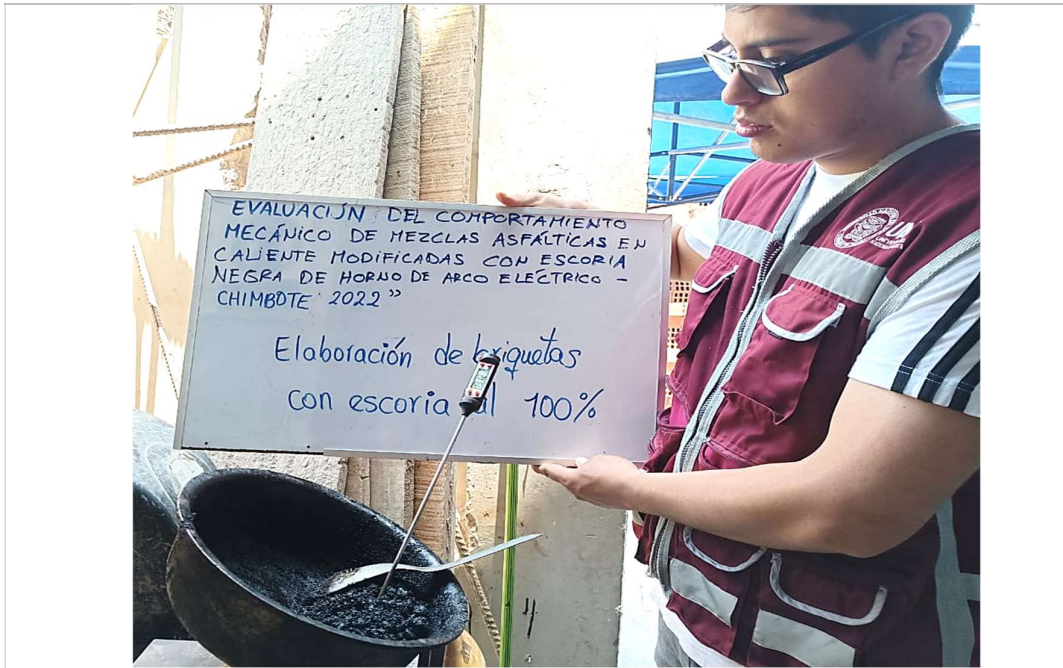 EVALUACIÓN DEL COMPORTAMIENTO
MECÁNICO DE MEZCLAS ASFÁLTICAS EN
CALIENTE MODIFICADAS CON ESCORIA
NEGRA DE HORNO DE ARCO ELÉCTRICO -
CHIMBOTE 2022"
Elaboración de briquetas
con escoria al 100%